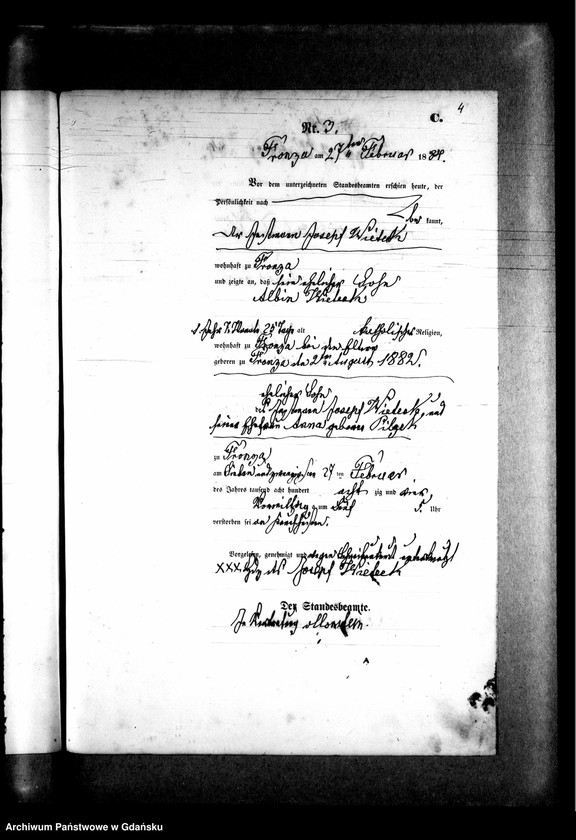 4
C.
Nr. 3.
Fronza am 27ten Februar 1884.
Vor dem unterzeichneten Standesbeamten erschien heute, der
Persönlichkeit nach
be kannt,
der Joseph Wieteck
wohnhaft zu Fronza
und zeigte an, daß sein ehelicher Sohn
Albin Wieteck
1 Jahr 7 Monate 25 Tage alt katholischer Religion,
wohnhaft zu Fronza bei den Eltern
geboren zu Fronza den 2ten August 1882.
ehelicher Sohn
des Joseph Wieteck, und
seiner Ehefrau Anna geborene Pilgek
zu Fronza
am sieben und zwanzigsten 27 ten Februar
des Jahres tausend acht hundert acht zig und vier
Vormittag s um fünf 5 Uhr
verstorben sei
Vorgelesen, genehmigt und wegen unterkreuzt
XXX des Joseph Wieteck
Der Standesbeamte.
In Vertretung
Archiwum Państwowe w Gdańsku